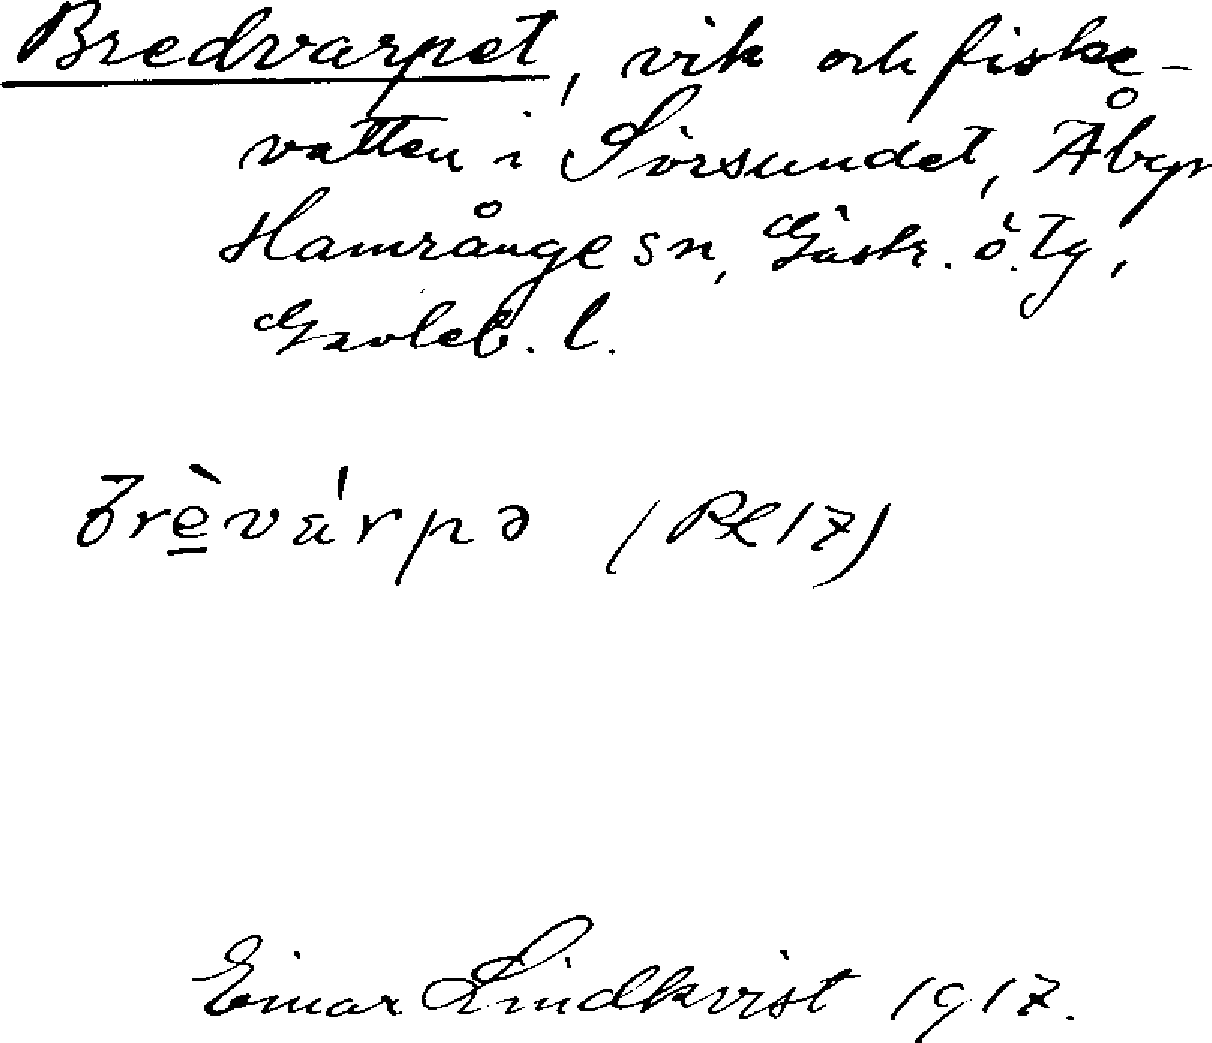 Bredvarpet, vik och fiske-
vatten i Sörsundet, Åbyn
Hamrånge sn, Gästr. ö. Tg,
Gävleb. l.
brèvárpə (Pl 17)
Einar Lindkvist 1917.